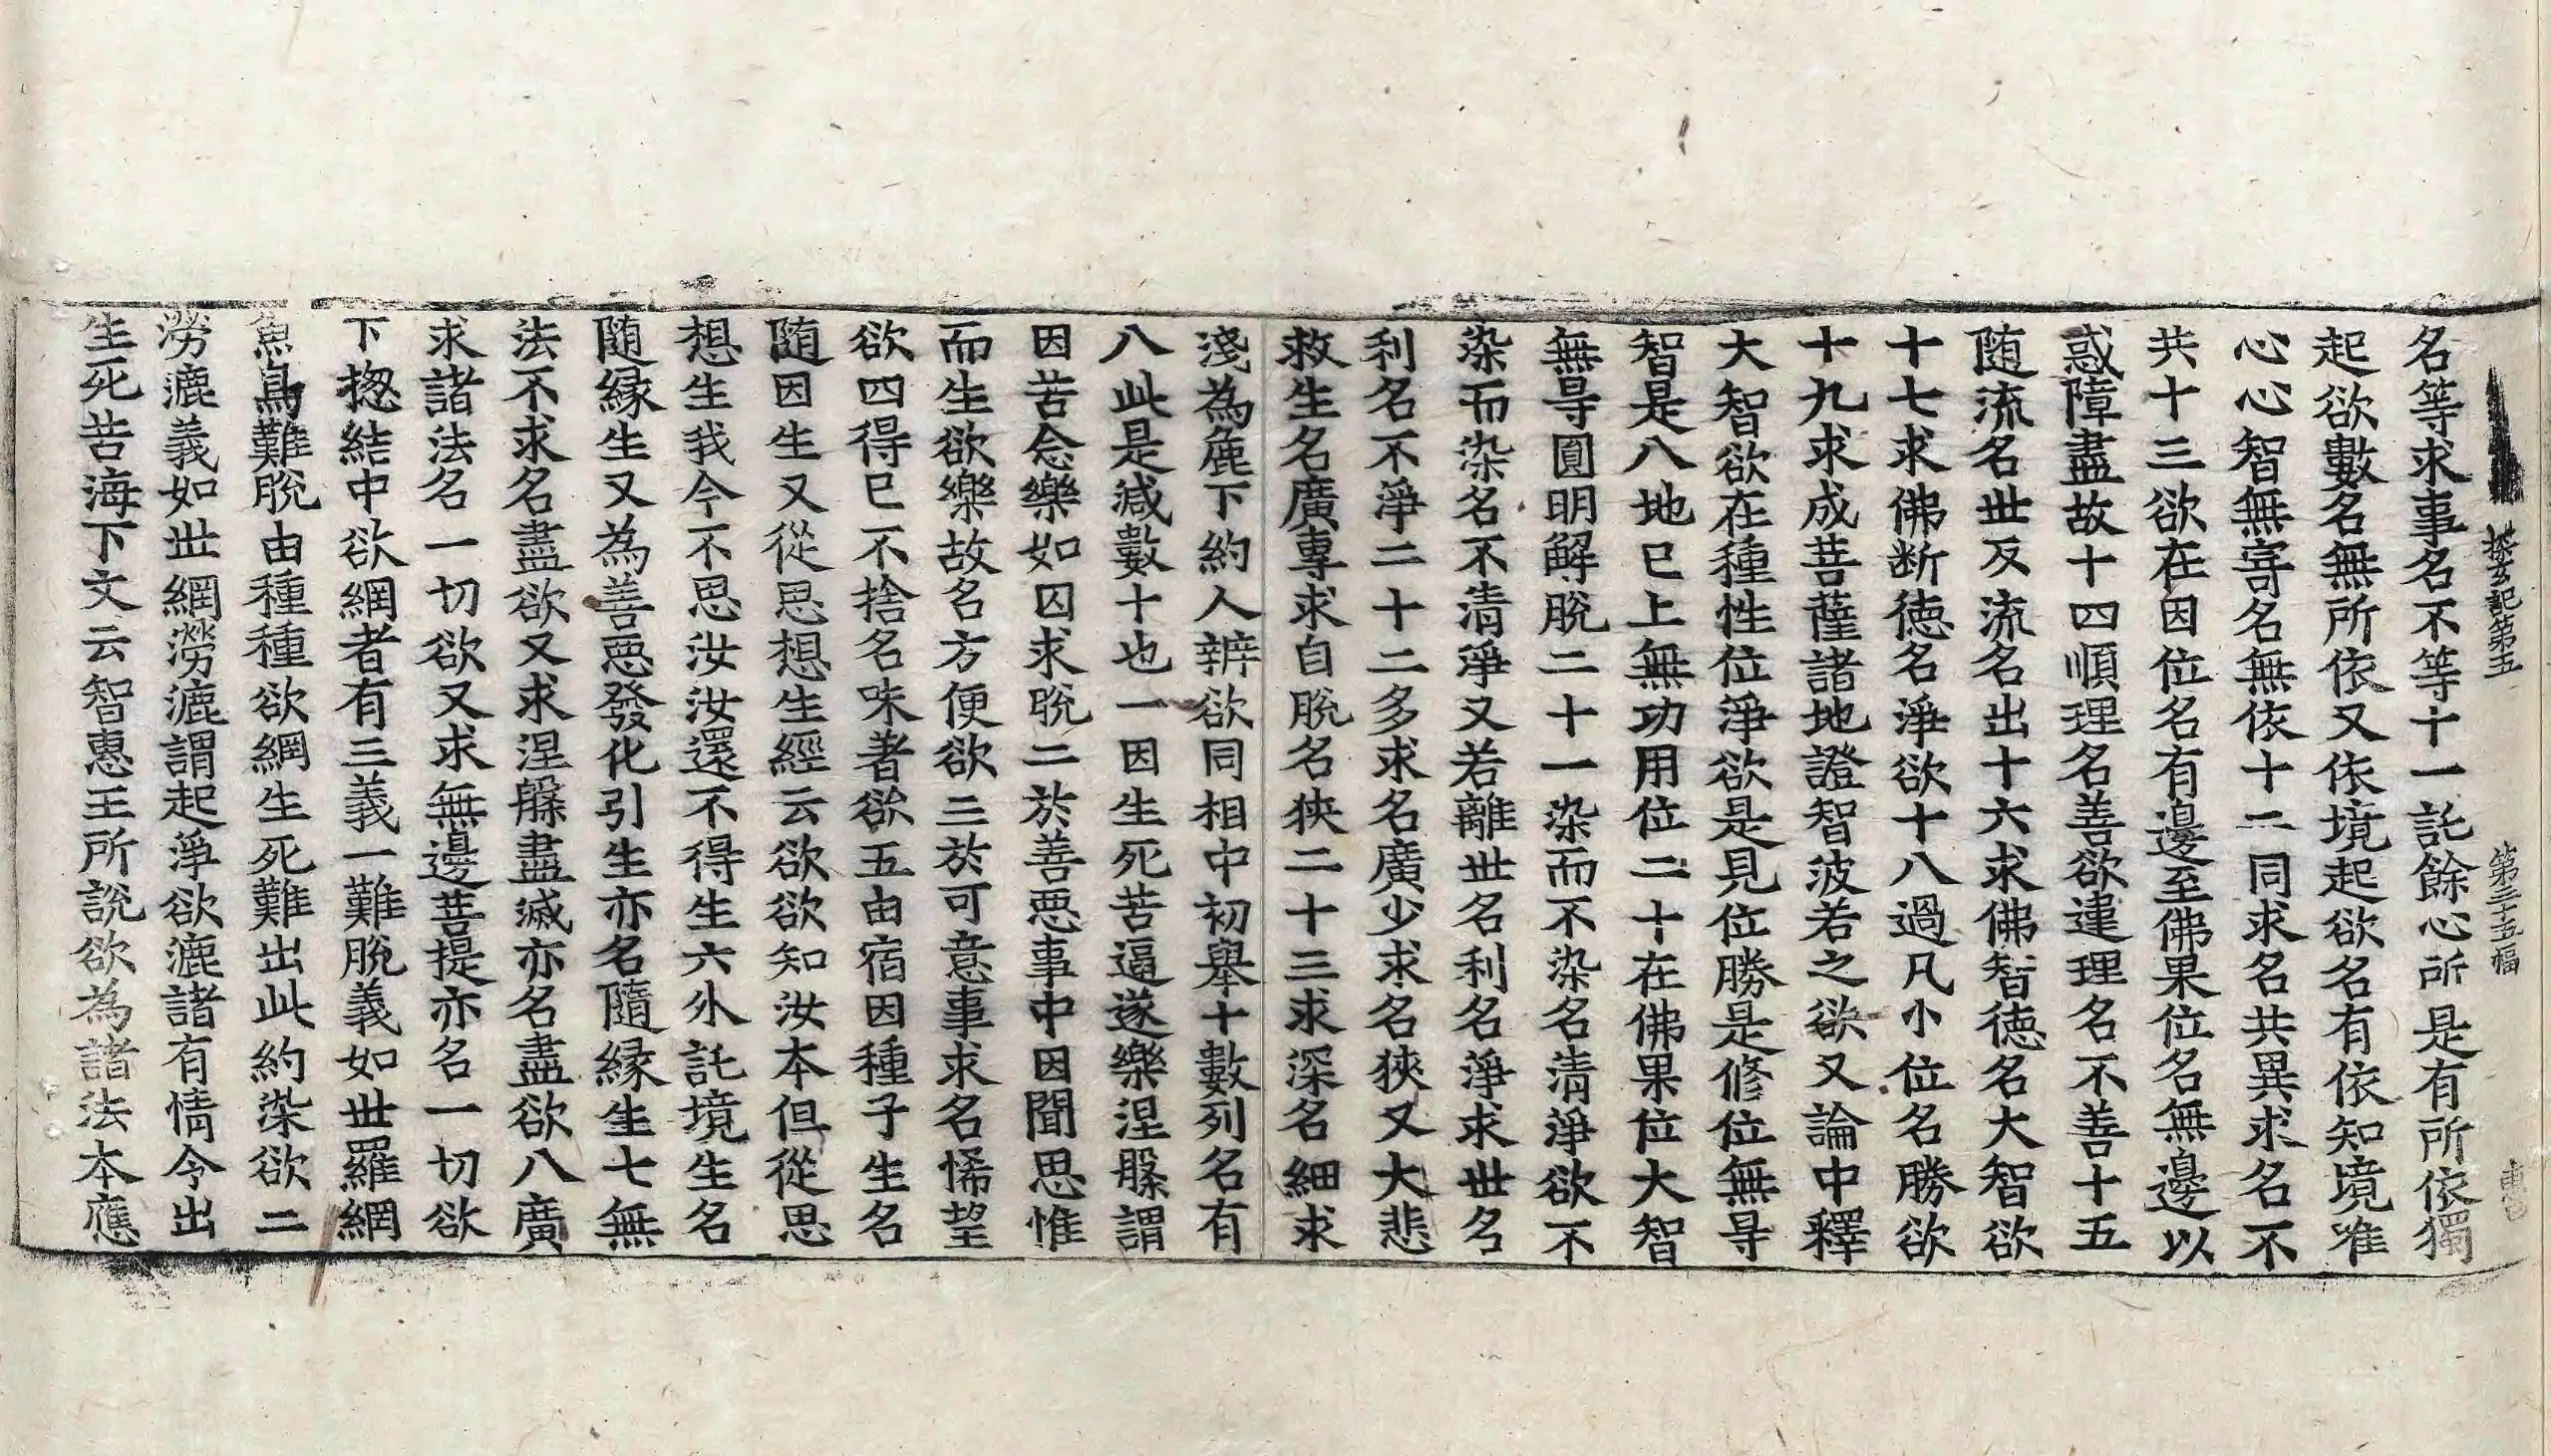 探玄記第五 第三十五幅
名等求事名不等十一託餘心所是有所依獨
起欲數名無所依又依境起欲名有依知境唯
心心智無寄名無依十二同求名共異求名不
共十三欲在因位名有邊至佛果位名無邊以
惑障盡故十四順理名善欲違理名不善十五
随流名世反流名出十六求佛智德名大智欲
十七求佛断德名淨欲十八過凡小位名勝欲
十九求成菩薩諸地證智波若之欲又論中釋
大智欲在種性位淨欲是見位勝是修位無㝵
智是八地已上無功用位二十在佛果位大智
無㝵圓明解脫二十一染而不染名清淨欲不
染而染名不清淨又若離世名利名淨求世名
利名不淨二十二多求名廣少求名狹又大悲
救生名廣專求自脫名狹二十三求深名細求
淺為麁下約人辨欲同相中初舉十數列名有
八此是減數十也一因生死苦逼遂樂涅槃謂
因苦念樂如囚求脫二於善惡事中因聞思惟
而生欲樂故名方便欲三於可意事求名悕望
欲四得已不捨名味著欲五由宿因種子生名
随因生又從思想生經云欲欲知汝本但從思
想生我今不思汝汝還不得生六外託境生名
随緣生又為善惡發化引生亦名隨緣生七無
法不求名盡欲又求涅槃盡滅亦名盡欲八廣
求諸法名一切欲又求無邊菩提亦名一切欲
下揔結中欲網者有三義一難脫義如世羅網
魚鳥難脫由種種欲網生死難出此約染欲二
澇漉義如世網澇漉謂起淨欲漉諸有情令出
生死苦海下文云智惠王所說欲為諸法本應